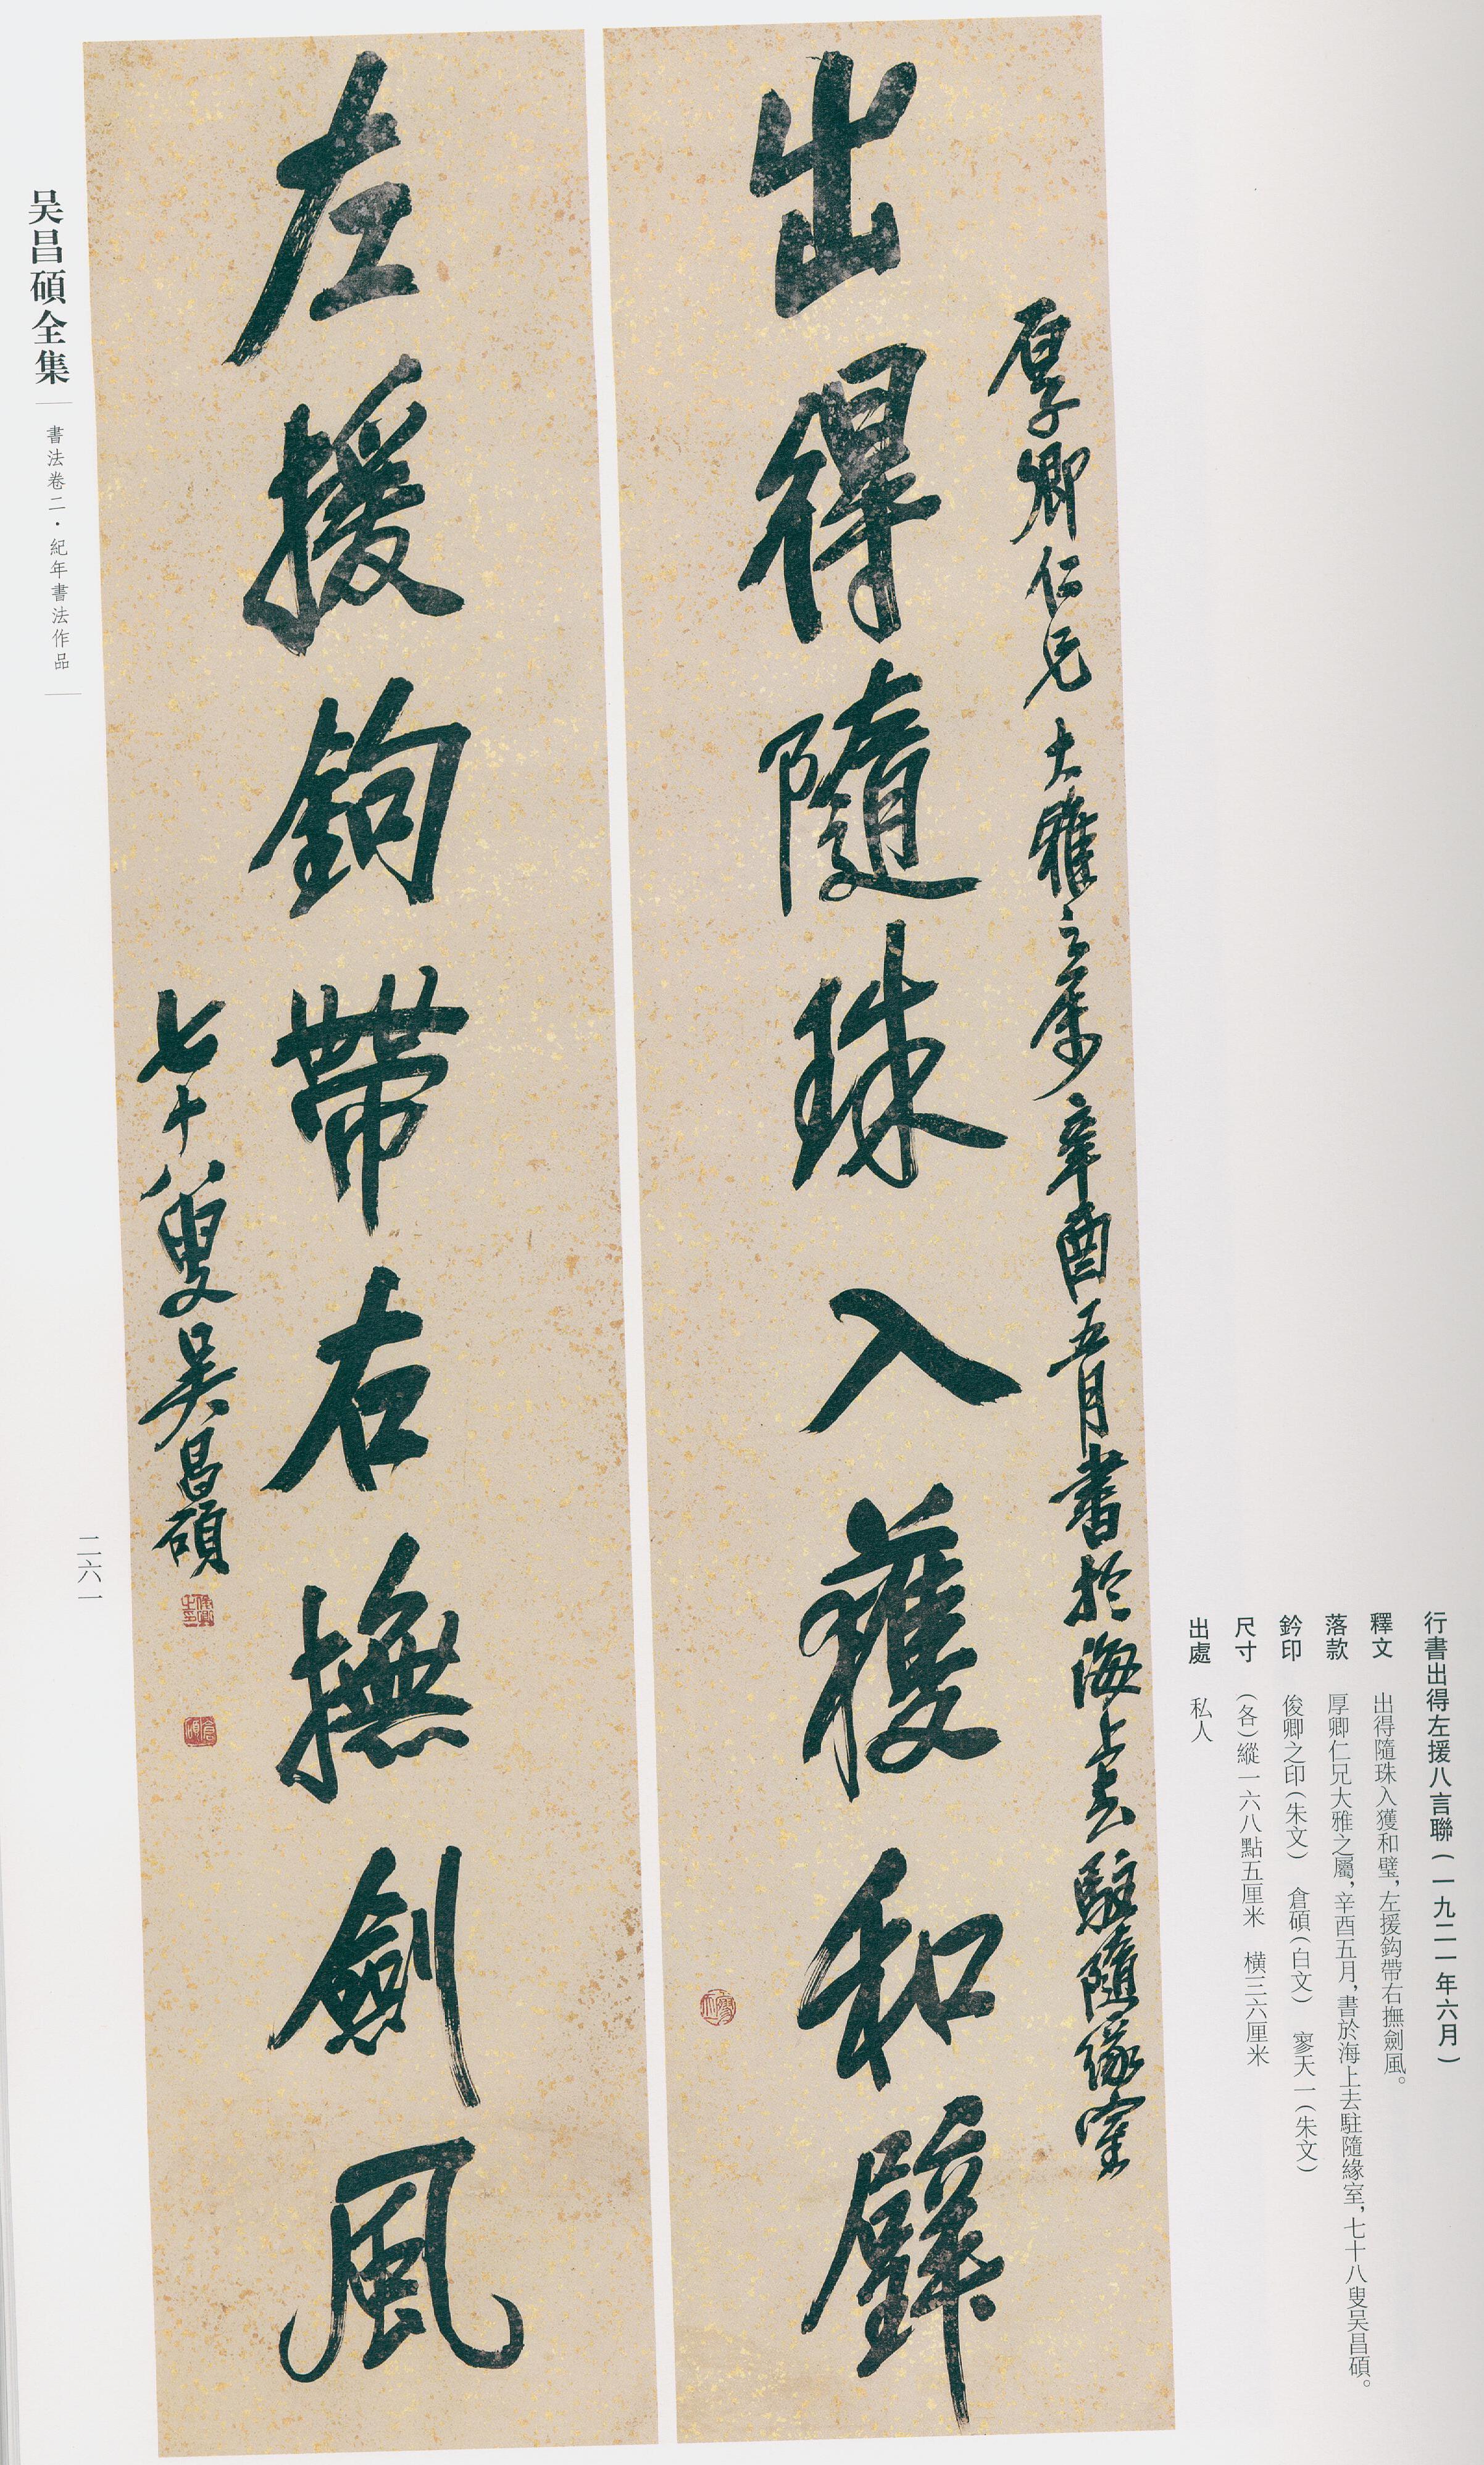 行書出得左援八言聯(一九二一年六月)
釋文 出得隨珠入獲和璧,左援鈎帶右撫劍風。
落款 厚卿仁兄大雅之屬,辛酉五月,書於海上去駐隨緣室,七十八叟吴昌碩。
鈐印 俊卿之印(朱文) 倉碩(白文) 寥天一(朱文)
尺寸 (各)縱一六八點五厘米 橫三六厘米
出處 私人
厚卿仁兄大雅之屬辛酉五月書於海上去駐隨緣室
出得隨珠入獲和璧
寥天一
左援鉤帶右撫劍風
七十八叟吴昌碩
俊卿之印
倉碩
吴昌碩全集
書法卷二・紀年書法作品
二六一